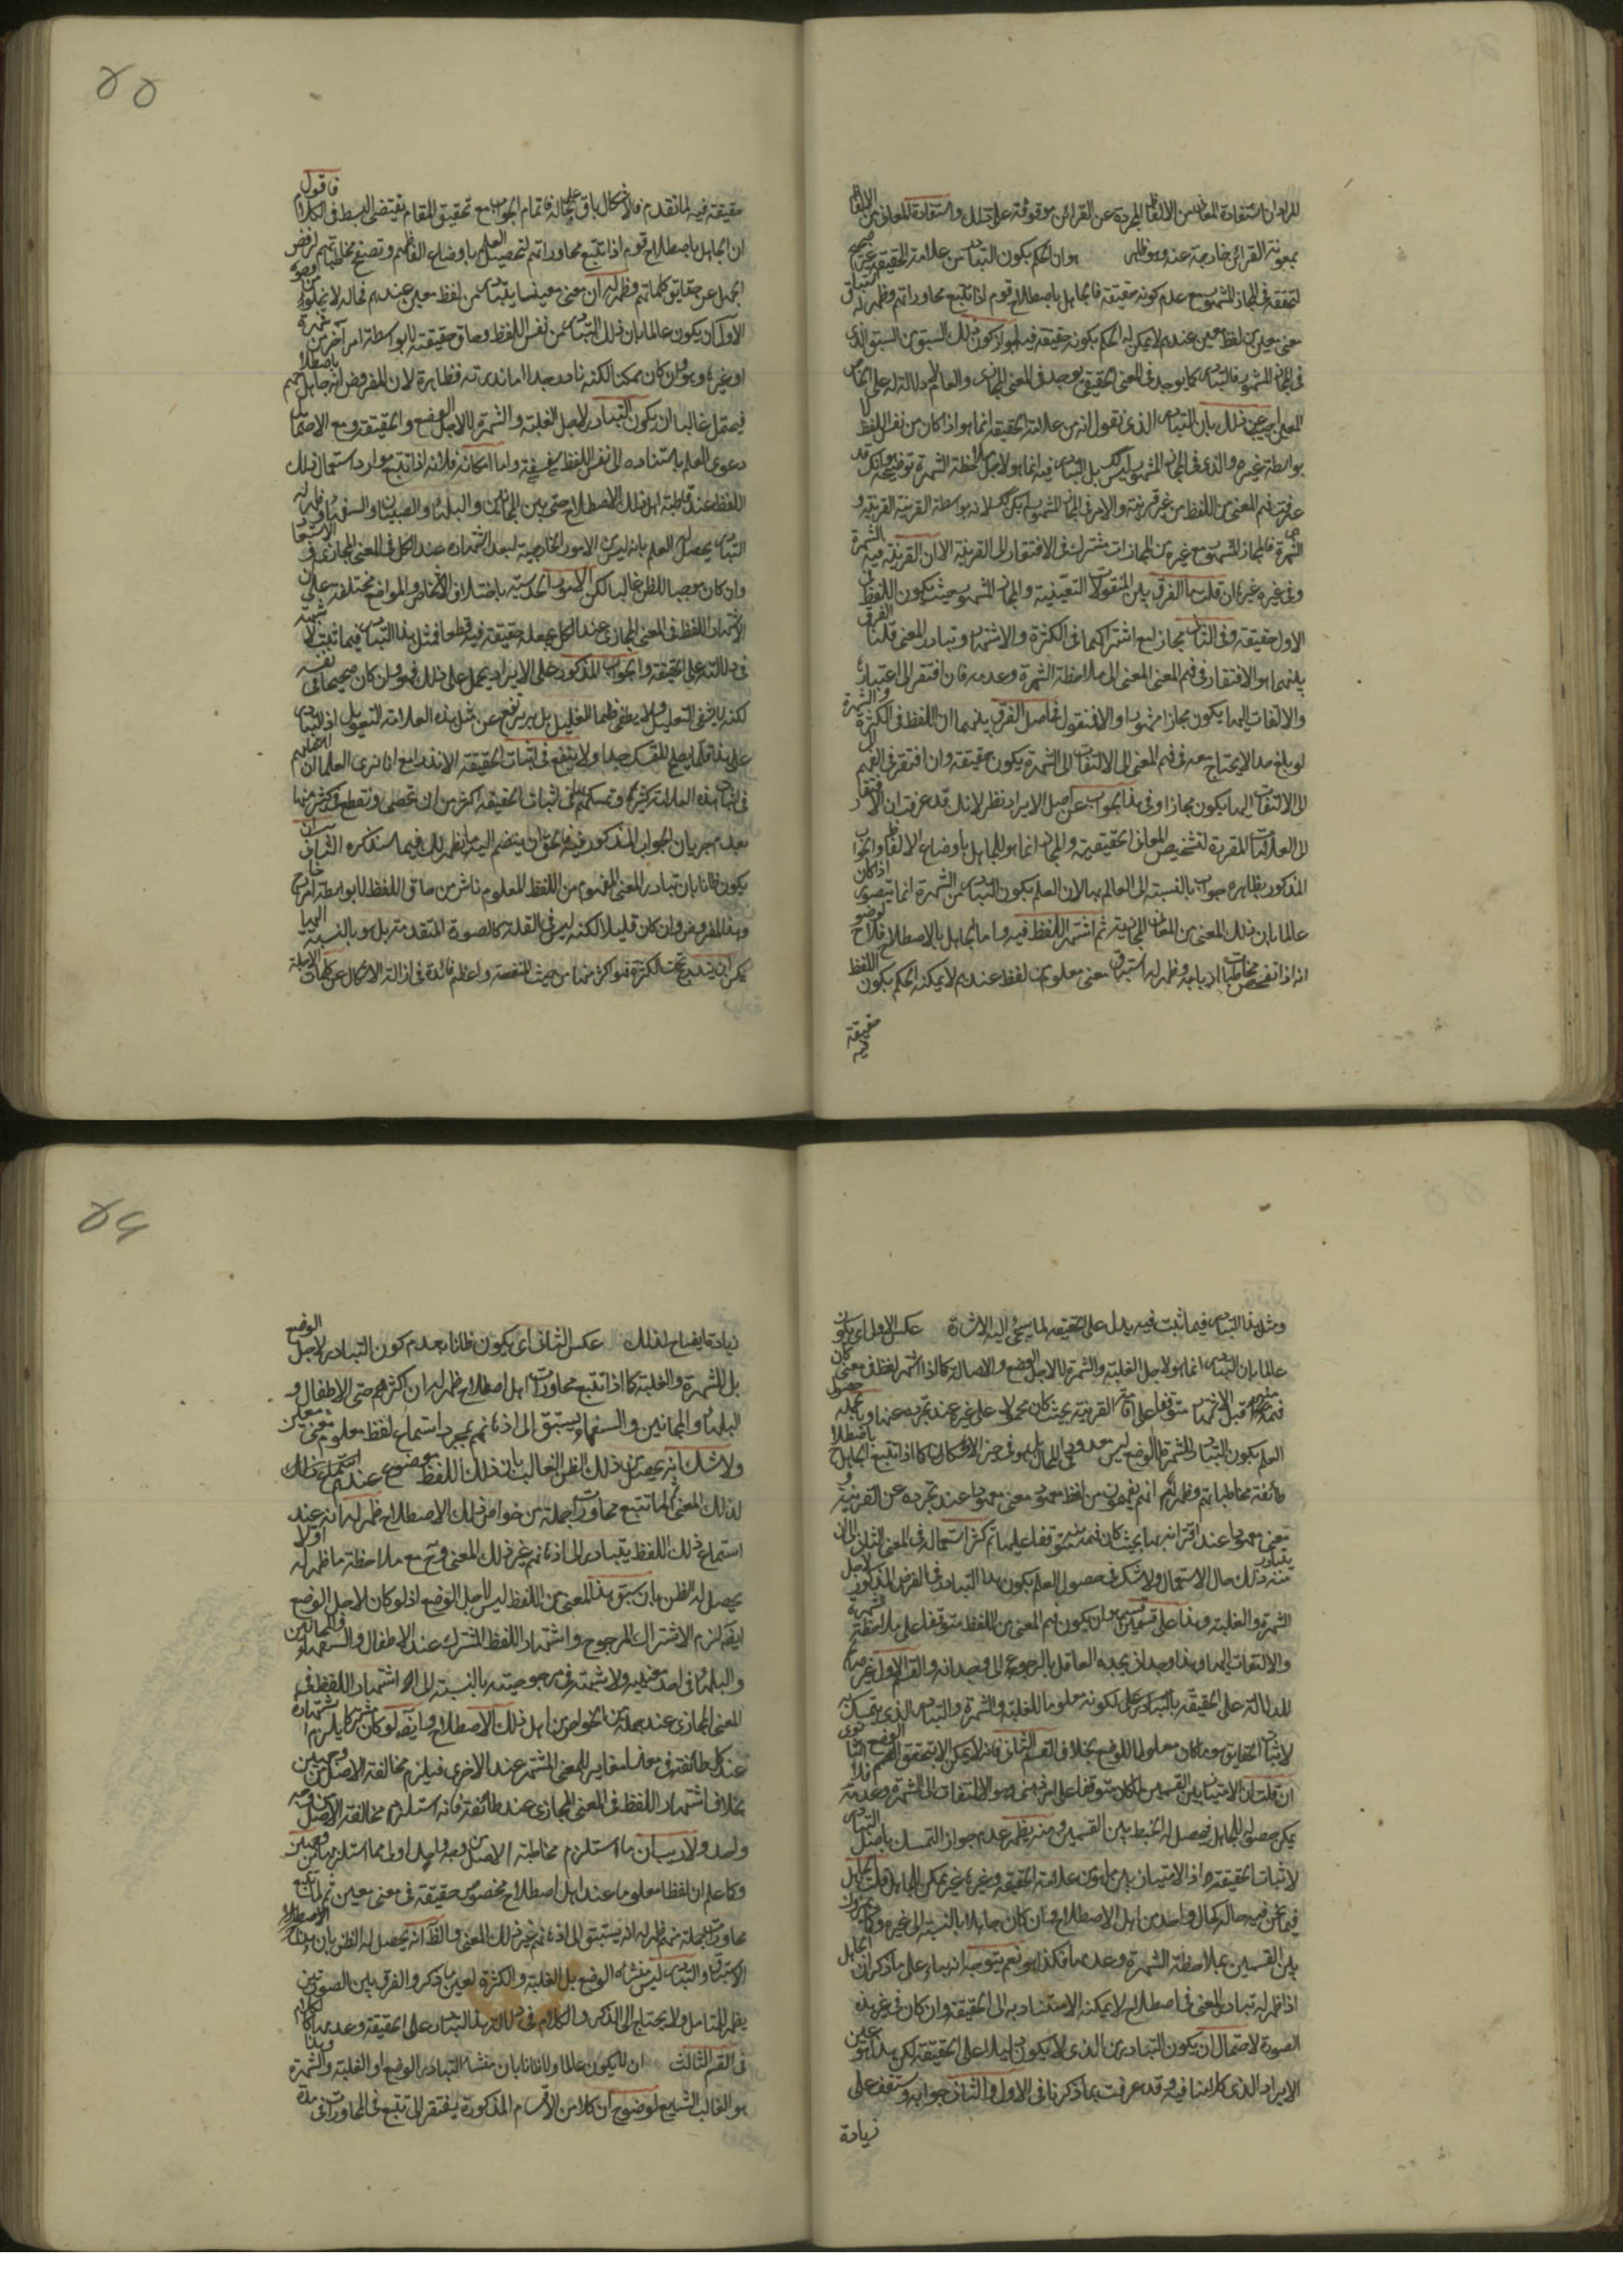 المراد ان استفادة المعانى من الالفاظ المجردة عن القرائن موقوفة على ذلك واستفادة المعانى من الالفاظ
بمعونة القرائن خارجة عنه وهو ظاهر هو ان الحكم بكون التبادر من علامة الحقيقة غير صحيح
لتحققه فى المجاز المشهور مع عدم كونه حقيقة فالجاهل باصطلاح قوم اذا تتبع محاوراتهم وظهر له استباق
معنى معين من لفظ معين عندهم لا يمكن له الحكم بكونه حقيقة فيه لجواز كون ذلك السبق من السبق الذى
فى المجاز المشهور فالتبادر كما يوجد فى المعنى الحقيقى يوجد فى المعنى المجازى والعام لا دلالة له على الخاص
المعين اجيب عن ذلك بان التبادر الذى نقول انه من علامة الحقيقة انما هو اذا كان من نفس اللفظ لا
بواسطة غيره والذى فى المجاز المشهور ليس كك بل التبادر فيه انما هو لاجل ملاحظة الشهرة توضيحه هو انك قد
عرفت فهم المعنى من اللفظ من غير قرينة والامر فى المجاز المشهور لم يكن كك لانه بواسطة القرينة القرينة و
الشهرة فالمجاز المشهور مع غيره من المجازات مشترك فى الافتقار الى القرينة الا ان القرينة فيه الشهرة
وفى غيره غيرها ان قلت ما الفرق بين المنقولات التعينية والمجاز المشهور حيث يكون اللفظ فى
الاول حقيقة وفى الثانى مجازا مع اشتراكهما فى الكثرة والاشتهار وتبادر المعنى قلنا الفرق
بينهما هو الافتقار فى فهم المعنى الى ملاحظة الشهرة وعدمه فان افتقر الى اعتبارها
والالتفات اليها يكون مجازا مشهورا والا فمنقول فحاصل الفرق بينهما ان اللفظ فى الكثرة والشهرة
لو بلغ حدا لا يحتاج معه فى فهم المعنى الى الالتفات الى الشهرة يكون حقيقة وان افتقر فى الفهم
الى الالتفات اليها يكون مجازا وفى هذا الجواب عن اصل الايراد نظر لانك قد عرفت ان الافتقار
الى العلامات المقررة لتشخيص المعانى الحقيقية والمجازية انما هو للجاهل باوضاع الالفاظ والجواب
المذكور بظاهره جواب بالنسبة الى العالم بها لان العلم بكون التبادر من الشهرة انما يتصور اذا كان
عالما بان ذلك المعنى من المعانى المجازية ثم اشتهر اللفظ فيه واما الجاهل بالاصطلاح فلا لوضوح
انه اذا تفحص مخاطبات اربابه وظهر له استباق معنى معلوم من لفظ عندهم لا يمكنه الحكم بكون اللفظ
حقيقة فيه
٥٥
حقيقة فيه لما تقدم فالاشكال باق على حاله فاتمام الجواب مع تحقيق المقام يقتضى البسط فى الكلام فاقول
ان الجاهل باصطلاح قوم اذا تتبع محاوراتهم لتحصيل العلم باوضاع الفاظهم وتصفح مخاطباتهم لرفض
الجهل عن حقايق كلماتهم وظهر له ان معنى معينا يتبادر من لفظ معين عندهم فحاله لا يخلو من وجوه
الاول ان يكون عالما بان ذلك التبادر من نفس اللفظ وحاق حقيقته لا بواسطة امر آخر من شهرة
او غيرها وهو وان كان ممكنا لكنه نادر جدا اما ندرته فظاهرة لان المفروض انه جاهل باصطلاحهم
فيحتمل غالبا ان يكون التبادر لاجل الغلبة والشهرة لا لاجل الوضع والحقيقة ومع الاحتمال
دعوى العلم باستناده الى نفس اللفظ سخيفة واما امكانه فلانه اذا تتبع موارد استعمال ذلك
اللفظ عند قاطبة اهل ذلك الاصطلاح حتى بين المجانين والبلهاء والصبيان والسفهاء فظهر له
التبادر يحصل له العلم بانه ليس من الامور الخارجية لبعد اشتهاره عند الكل فى المعنى المجازى
وان كان موجبا للظن غالبا
الاشتهار اللفظ فى المعنى المجازى عند الكل يجعله حقيقة فيه قطعا فمثل هذا التبادر فيما ثبت لا شبهة
فى دلالته على الحقيقة والجواب المذكور على الايراد يحمل على ذلك فهو وان كان صحيحا فى نفسه
لكنه لا يشفى التعليل ولا يطفى ظمأ الغليل بل يرتفع عن مثل هذه العلامات التعويل اذ التبادر
على هذا قلما يصلح للتمسك جدا ولا ينتفع فى اثبات الحقيقة الا نادرا مع انا نرى العلماء ان
فى اثبات هذه العلامات كثيرة وتمسكهم على اثبات الحقيقة اكثر من ان تحصى ونقطع فى كثير منها
بعدم جريان الجواب المذكور فيها فالحق ان ينضم اليه ما يظهر لك فيما سنذكره الثانى ان
يكون ظانا بان تبادر المعنى المفهوم من اللفظ المعلوم ناش من حاق اللفظ لا بواسطة امر خارج
وهذا المفروض وان كان قليلا لكنه ليس فى القلة كالصورة المتقدمة بل هو بالنسبة اليها
يمكن ان يندرج تحت الكثرة فهو اكثر منها من حيث المنفعة واعظم فائدة فى ازالة الاشكال عن كلمات الاجلة
ومثل هذا التبادر فيما ثبت فيه يدل على الحقيقة لما سيجئ اليه الاشارة عكس الاول اى يكون
عالما بان التبادر انما هو لاجل الغلبة والشهرة لا لاجل الوضع والاصالة كما اذا اشتهر لفظ فى معنى كان
فهمه منه قبل الاشتهار متوقفا على القرينة بحيث كان محمولا على غيره عند تجرده عنها وبالجملة حصول
العلم بكون التبادر للشهرة لا الوضع ليس معدودا فى المحال بل هو فى حيز الامكان كما اذا تتبع الجاهل باصطلاح
طائفة مخاطباتهم وظهر له انهم يفهمون من لفظ معهود معنى معهودا عند تجرده عن القرينة و
معنى معهودا عند اقترانه بها بحيث كان فهمه منه متوقفا عليها ثم كثر استعماله فى المعنى الثانى الى ان
يتبادر منه ذلك حال الاستعمال ولا شك فى حصول العلم بكون هذا التبادر فى الفرض المذكور لاجل
الشهرة والغلبة وهذا على قسمين هو ان يكون فهم المعنى من اللفظ متوقفا على ملاحظة الشهرة
والالتفات اليها وهذا وجدانى يجده العاقل بالرجوع الى وجدانه والقسم الاول غير صالح
للدلالة على الحقيقة بالتبادر لكونه معلوما للغلبة والشهرة والتبادر الذى يتمسك به
لاثبات الحقايق هو ما كان معلولا للوضع بخلاف القسم الثانى فانه لا يمكن الا بتحقق الوضع
ان قلت ان الامتياز بين القسمين لما كان متوقفا على امر وهو الالتفات الى الشهرة وعدمه فلا
يمكن حصوله للجاهل فيحصل له الخبط بين القسمين ومنه يظهر عدم جواز التمسك باصل التبادر
لاثبات الحقيقة اذ الامتياز بين ما هو من علامة الحقيقة وغيرها غير ممكن للجاهل قلت الجاهل
فيما نحن فيه حاله كحال واحد من اهل الاصطلاح وان كان جاهلا بالنسبة الى غيره
بين القسمين بملاحظة الشهرة وعدمها فكذا هو نعم يتوجه انه بناء على ما ذكر ان الجاهل
اذا ظهر له تبادر المعنى فى اصطلاح لا يمكنه الاستناد به الى الحقيقة وان كان فى غير هذه
الصورة لاحتمال ان يكون التبادر من الذى لا يكون دليلا على الحقيقة لكن هذا هو عين
الايراد الذى كلامنا فيه وقد عرفت بما ذكرنا فى الاول والثانى جوابه وستقف على
زيادة
٥٦
زيادة ايضاح لذلك عكس الثانى اى يكون ظانا بعدم كون التبادر لاجل الوضع
بل للشهرة والغلبة كما اذا تتبع محاورات اهل اصطلاح ظهر له ان اكثرهم حتى الاطفال و
البلهاء والمجانين والسفهاء يستبق الى اذهانهم بمجرد استماع لفظ معلوم معنى معين
ولا شك انه يحصل من ذلك الظن الغالب بان ذلك اللفظ موضوع عندهم
لذلك المعنى ثم لما تتبع محاورات جملة من خواص ذلك الاصطلاح ظهر له انه عند
استماع ذلك اللفظ يتبادر الى اذهانهم غير ذلك المعنى وح مع ملاحظة ما ظهر له اولا
يحصل له الظن بان سبق هذا المعنى من اللفظ ليس لاجل الوضع اذ لو كان لاجل الوضع
ايضا لزم الاشتراك المرجوح واشتهار اللفظ المشترك عند الاطفال والسفهاء والمجانين
والبلهاء فى احد معنييه ولا شبهة فى مرجوحيته بالنسبة الى اشتهار اللفظ فى
المعنى المجازى عند جملة من الخواص من اهل ذلك الاصطلاح وايضا لو كان مشتركا يلزم اشتهاره
عند كل طائفة فى معنى مغاير للمعنى المشتهر عند الاخرى فيلزم مخالفة الاصل من وجهين
بخلاف اشتهار اللفظ فى المعنى المجازى عند طائفة فانه استلزم مخالفة الاصل من وجه
واحد ولا ريب ان ما استلزم مخالفة الاصل من وجه واحد اولى مما استلزمها من وجهين
وكما علم ان لفظا معلوما عند اهل اصطلاح مخصوص حقيقة فى معنى معين ثم لما تتبع
محاورات جملة منهم ظهر له انه يستبق الى اذهانهم غير ذلك المعنى والظاهر انه يحصل له الظن بان هذا
الاستباق والتبادر ليس منشاؤه الوضع بل الغلبة والكثرة لعين ما ذكر والفرق بين الصورتين
يظهر للمتامل ولا يحتاج الى الذكر والكلام فى دلالة هذا التبادر على الحقيقة وعدمها كالكلام
فى القسم الثالث ان لا يكون عالما ولا ظانا بان منشاء التبادر الوضع او الغلبة والشهرة وهذا
هو الغالب الشايع لوضوح ان كلا من الاقسام المذكورة يفتقر الى تتبع فى المحاورات فى مدة